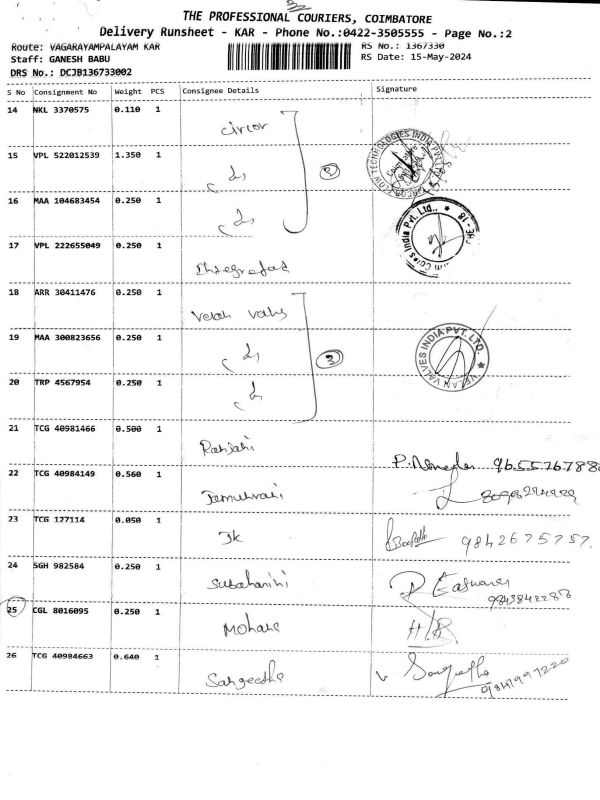 THE PROFESSIONAL COURIERS, COIMBATORE
Delivery Runsheet - KAR - Phone No.:0422-3505555 - Page No.:2
Route: VAGARAYAMPALAYAM KAR RS No.: 1367330
Staff: GANESH BABU RS Date: 15-May-2024
DRS No.: DCJB136733002
S No Consignment No Weight PCS Consignee Details Signature
14 NKL 3370575 0.110 1 circor
15 VPL 522012539 1.350 1 2
16 MAA 104683454 0.250 1
17 VPL 222655049 0.250 1 Integrated
18 ARR 30411476 0.250 1 Velan Valves
19 MAA 300823656 0.250 1 3 VELAN VALVES INDIA PVT. LTD.
20 TRP 4567954 0.250 1
21 TCG 40981466 0.500 1 Ranjani
22 TCG 40984149 0.560 1
23 TCG 127114 0.050 1 Jk 9842675757
24 SGH 982584 0.250 1 Subaharini
25 CGL 8016095 0.250 1
26 TCG 40984663 0.640 1 Sangeetha Sangeetha